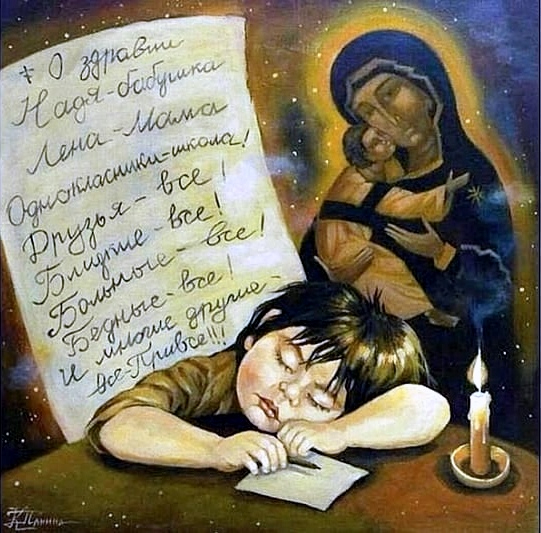 О здравии
Надя-бабушка
Лена-Мама
Однокласники-школа!
Друзья-все!
Близкие-все!
Больные-все!
Бедные-все!
И многие другие-
все-Привсе!!!
Панина